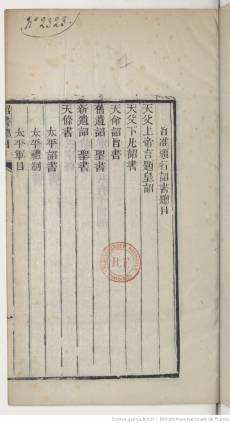 N° 2323.
1
旨准頒行詔書總目
天父上帝言題皇詔
天父下凡詔書
天命詔旨書
舊遺詔聖書
新遺詔聖書
天條書
太平詔書
太平禮制
太平軍目
R.F.
Source gallica.bnf.fr / Bibliothèque nationale de France